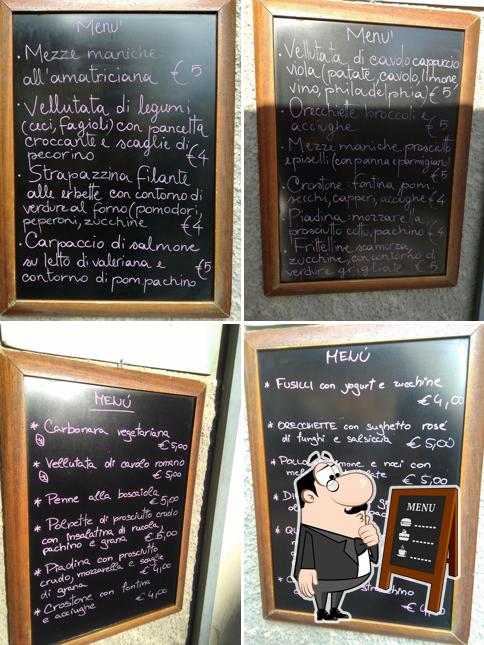 Menu'
• Mezze maniche
all'amatriciana € 5
• Vellutata di legumi
(ceci, fagioli) con pancetta
croccante e scaglie di
pecorino € 4
• Strapazzina filante
alle erbette con contorno di
verdure al forno (pomodori,
peperoni, zucchine € 4
• Carpaccio di salmone
su letto di valeriana e € 5
contorno di pom. pachino
Menu'
• Vellutata di cavolo cappuccio
viola (patate, cavolo, limone,
vino, philadelphia) € 5
• Orecchiette broccoli e
acciughe € 5
• Mezze maniche prosciutto
e piselli (con panna e parmigiano)
€ 5
• Crostone: fontina, pom.
secchi, capperi, acciughe € 4
• Piadina: mozzarella,
prosciutto cotto, pachino € 4
• Frittelline scamorza,
zucchine, con contorno di
verdure grigliate € 5
MENÚ
* Carbonara vegetariana
€ 5,00
* Vellutata di cavolo romano
€ 5,00
* Penne alla boscaiola
€ 5,00
* Polpette di prosciutto crudo
con insalatina di rucola,
pachino e grana € 5,00
* Piadina con prosciutto
crudo, mozzarella e scaglie
di grana € 4,00
* Crostone con fontina
e acciughe € 4,00
MENÚ
* FUSILLI con yogurt e zucchine
€ 4,00
* ORECCHIETTE con sughetto rosé
di funghi e salsiccia € 5,00
* POLLO limone e noci con
€ 5,00
MENU